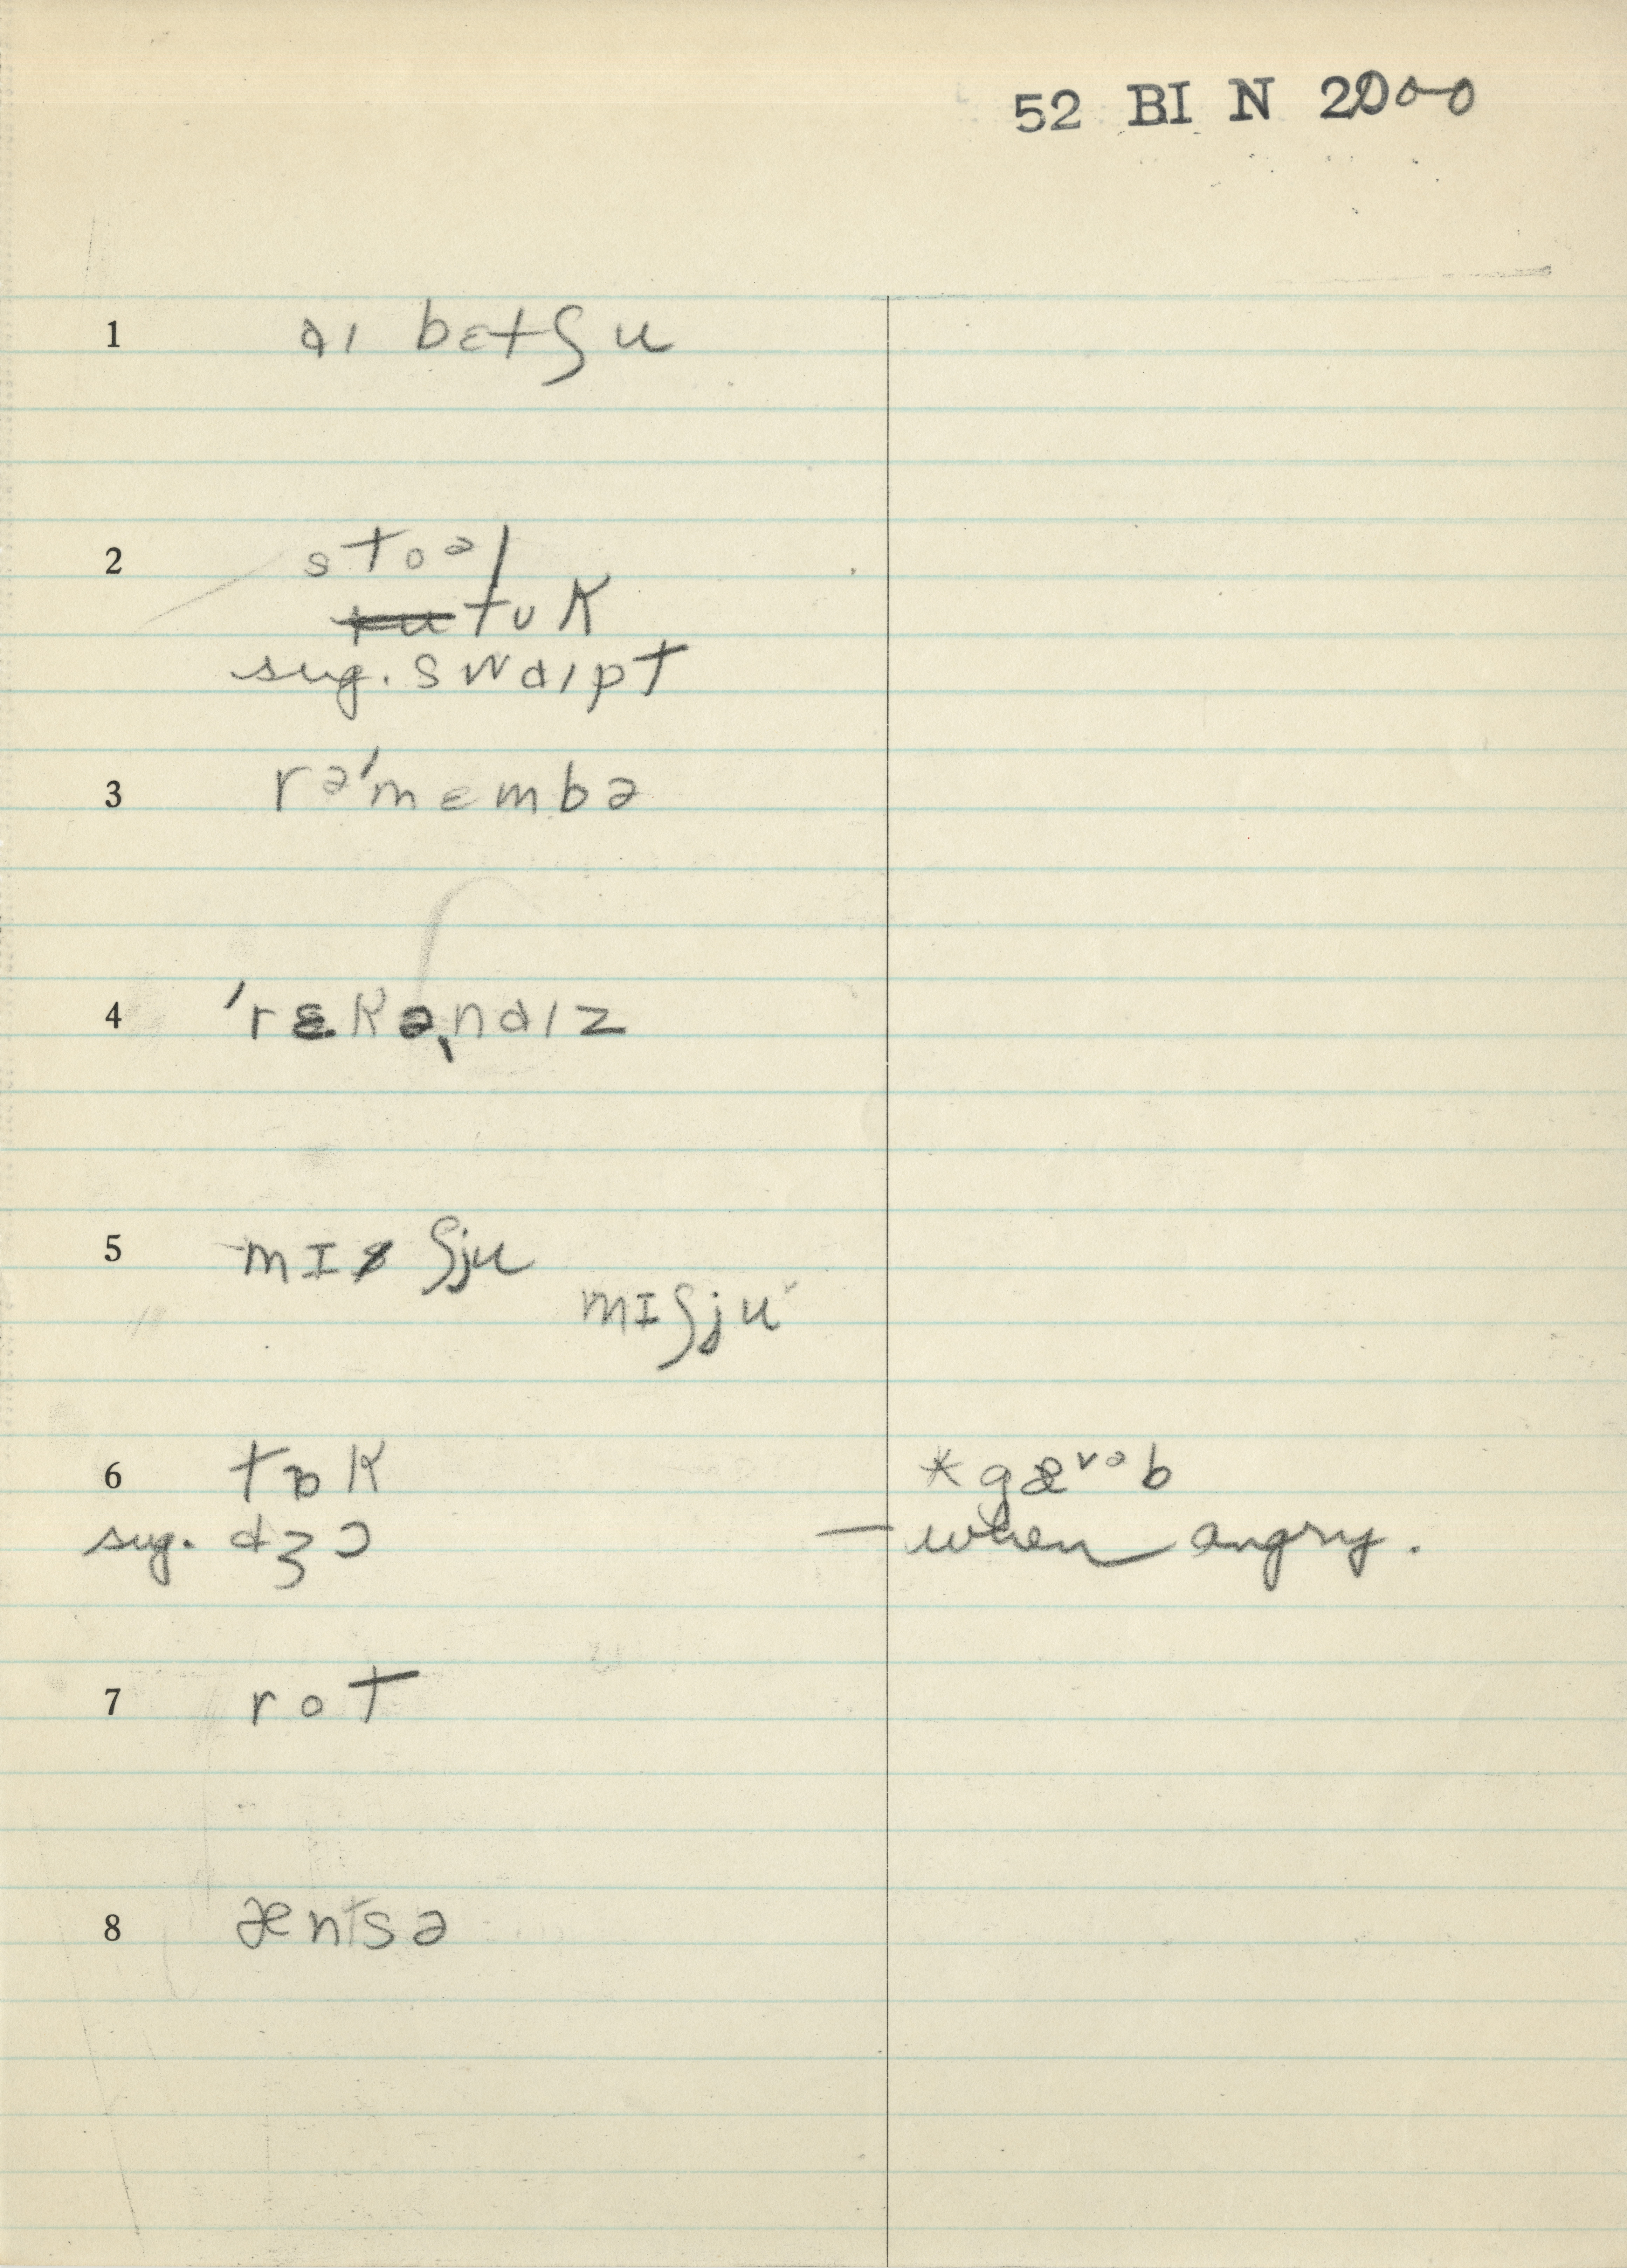 52 BI N 2000
1 aɪ bɛtʃu
2 stoəl
tʊk
sug. swaɪpt
3 rə'mɛmbə
4 'rɛkəˌnaɪz
5 mɪʃju
mɪʃju
6 tɒk * gævəb
sug. dʒɔ — when angry.
7 rot
8 æntsə